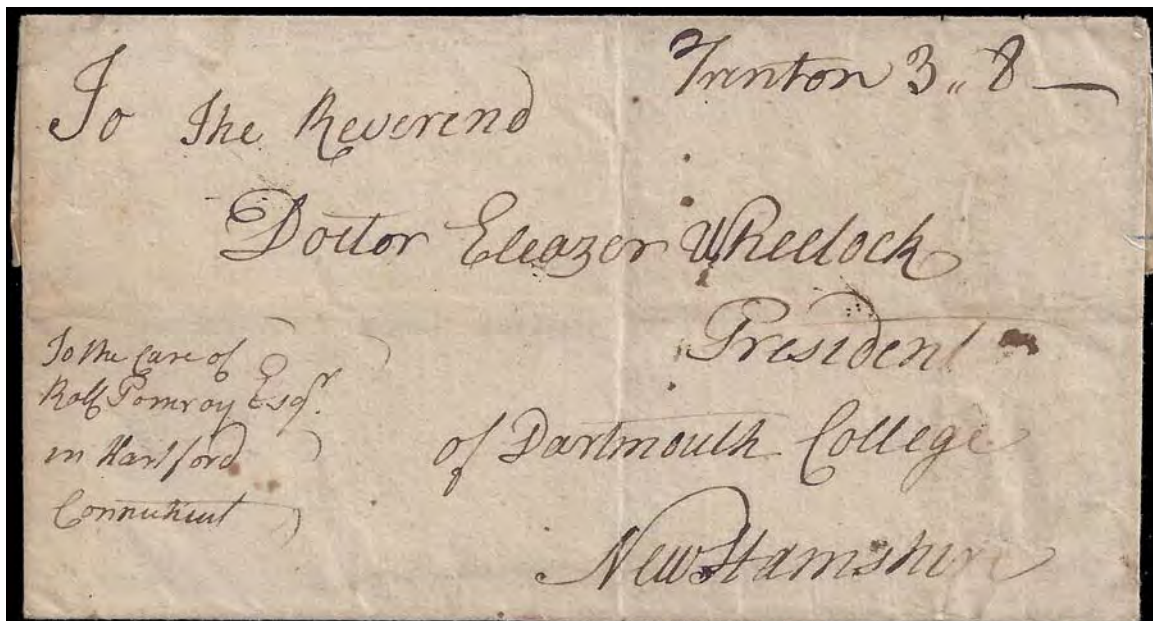 Trenton 3 " 8 —
To The Reverend
Doctor Eleazer Wheelock
President
of Dartmouth College
New Hamshire
To the Care of
Ralf Pomroy Esqr.
in Hartford
Connecticut